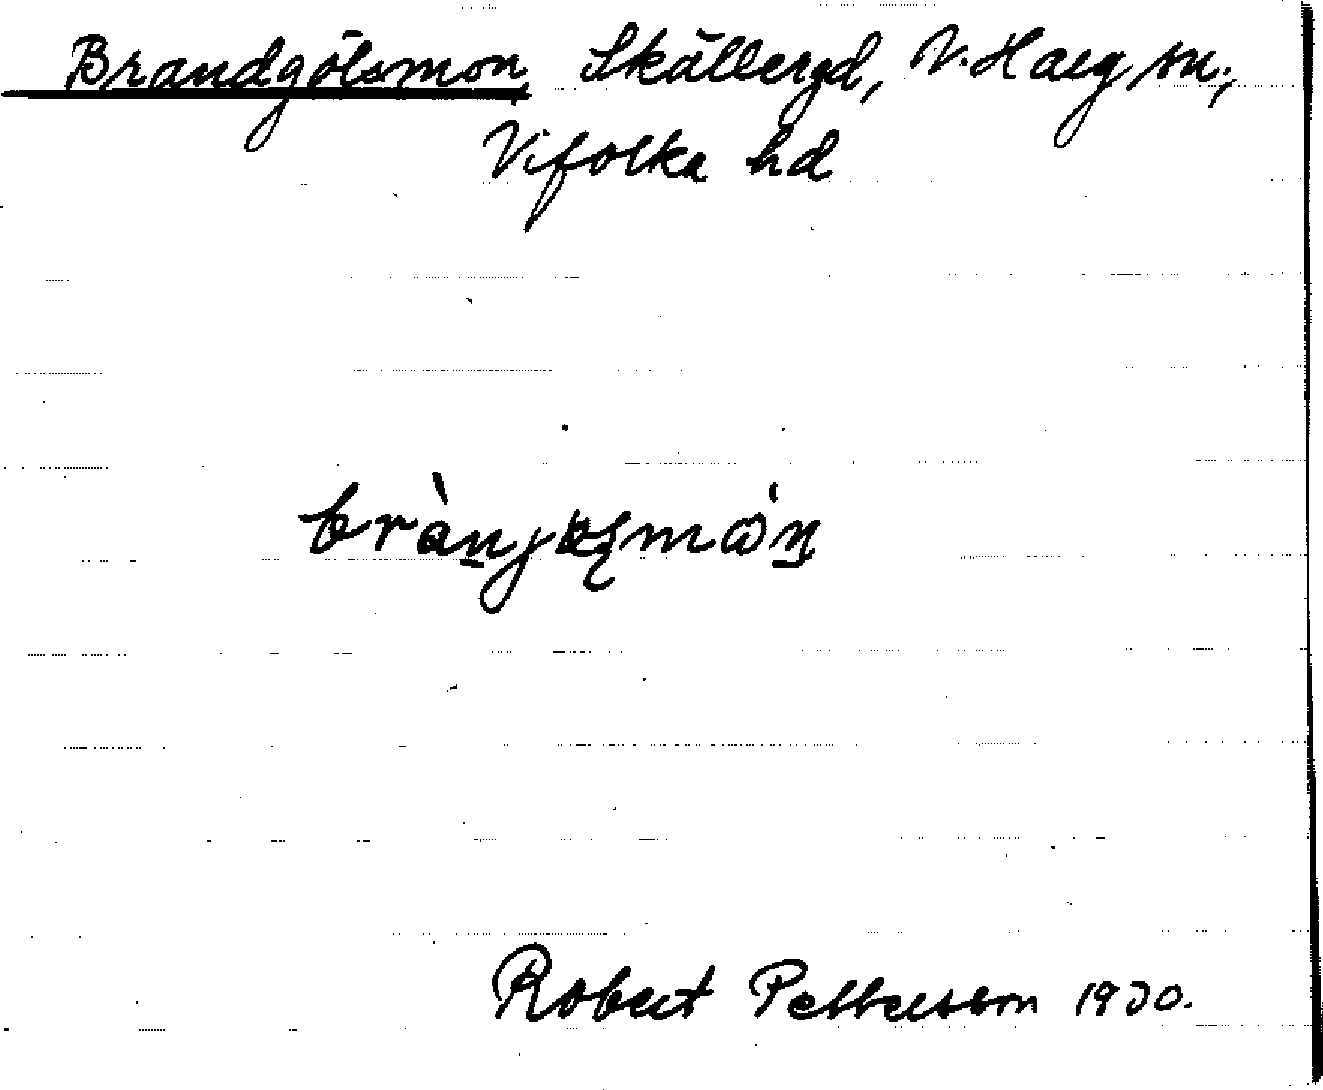 Brandgölsmon, Skällergd, V. Harg sn.,
Vifolka hd
Robert Pettersson 1930.